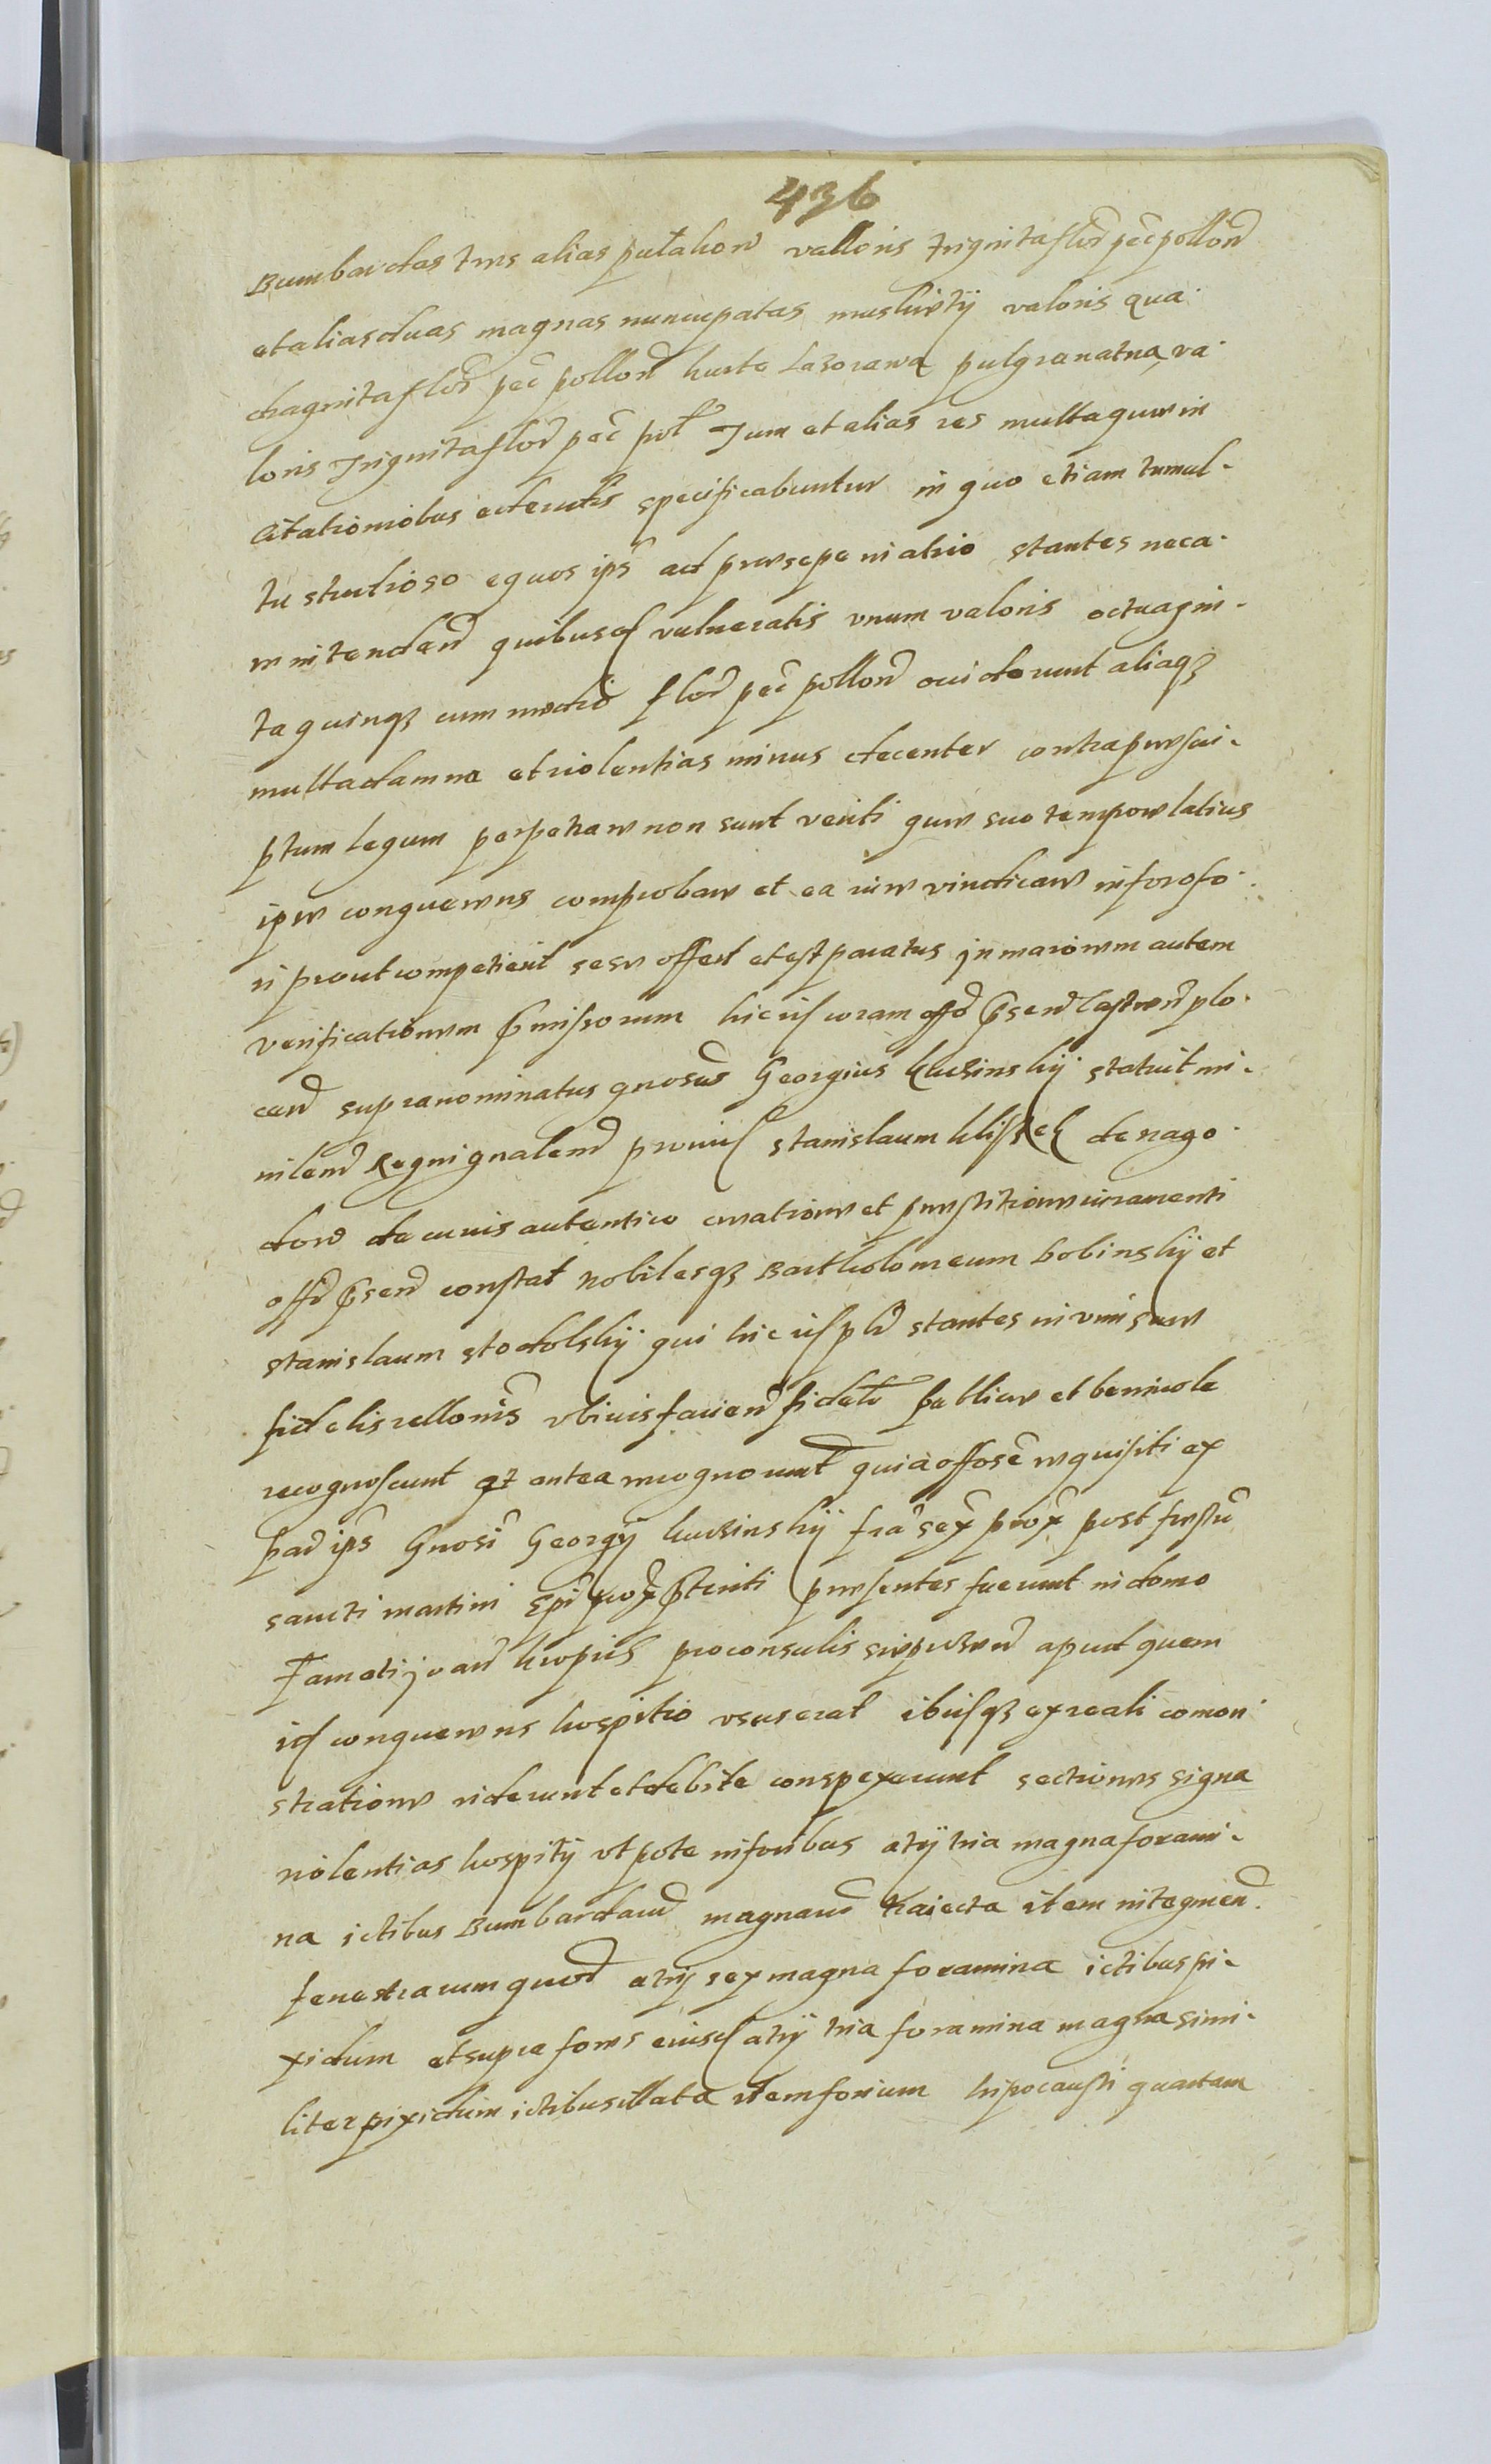 436
Bumbardas tres alias pultahow valloris triginta flor pec pollon
et alias duas magnas nuncupatas muskiety valoris qua-
draginta flor pec pollon kurte Lazorawa pulgranatna va-
loris triginta flor pec pol Tum et alias res multa quae in
Citationibus edendis specificabuntur in quo etiam tumul-
tu studioso equos ips ad praesepe in atrio stantes neca-
re intendend quibusd vulneratis unum valoris octuagin-
ta quinq cum medio flor pec pollon occiderunt aliaq
multa damna et violentias minus decenter contra praescri-
ptum legum perpetrare non sunt veriti quae suo tempore latius
ipse conquerens comprobare et ea iure vindicare in foro fo-
ri prout competierit sese offert et est paratus In maiorem autem
verificationem pmissorum hic iis coram offo psen Castren plo-
cen supranominatus gnosus Georgius kuzinsky statuit mi-
nilem Regni gnalem provid stanislaum kliszek de nago-
dow de cuius autentico creationis et praestitionis iuramenti
offo psen constat Nobilesq Bartholomeum bobinsky et
stanislaum stodolsky qui hic iis pls stantes in vim suae
fidelis rellonis ubivis facien fidele publice et benivole
recognoscunt qz antea recognoverunt quia offose requisiti ex
pad ips Gnosi Georgy kuzinsky fra sex prox post festu
sancti martini Epi prox pteriti praesentes fuerunt in domo
Famati joan kropich proconsulis sieprzen apud quem
id conquerens hospitio usus erat ibiisq ex reali comon-
stratione viderunt et debite conspexerunt sectiones signa
violentias hospity utpote in foribus atry tria magna forami-
na ictibus Bumbardaru magnaru traiecta item in tegmen
fenestrarum quod atry sex magna foramina ictibus pi-
xidum et supra fores eiusd atry tria foramina magna simi-
liter pixidum ictibus illata item forium hipocausti quartam